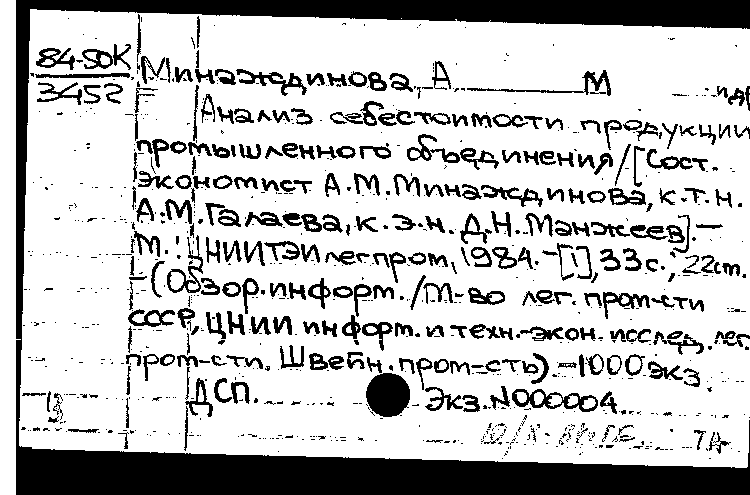 84-50К
3452
Минаждинова, А М и др
Анализ себестоимости продукции
промышленного объединения/[Сост.
экономист А.М.Минаждинова, к.т.н.
А.М.Галаева, к.э.н. Д.Н.Манжеев].—
М.: ЦНИИТЭИлегпром, 1984.-[1], 33с.; 22см.
-(Обзор.информ./М-во лег. пром-сти
СССР, ЦНИИ информ. и техн.-экон. исслед. лег.
пром-сти. Швейн.пром-сть).-1000экз.
ДСП. Экз.N000004.